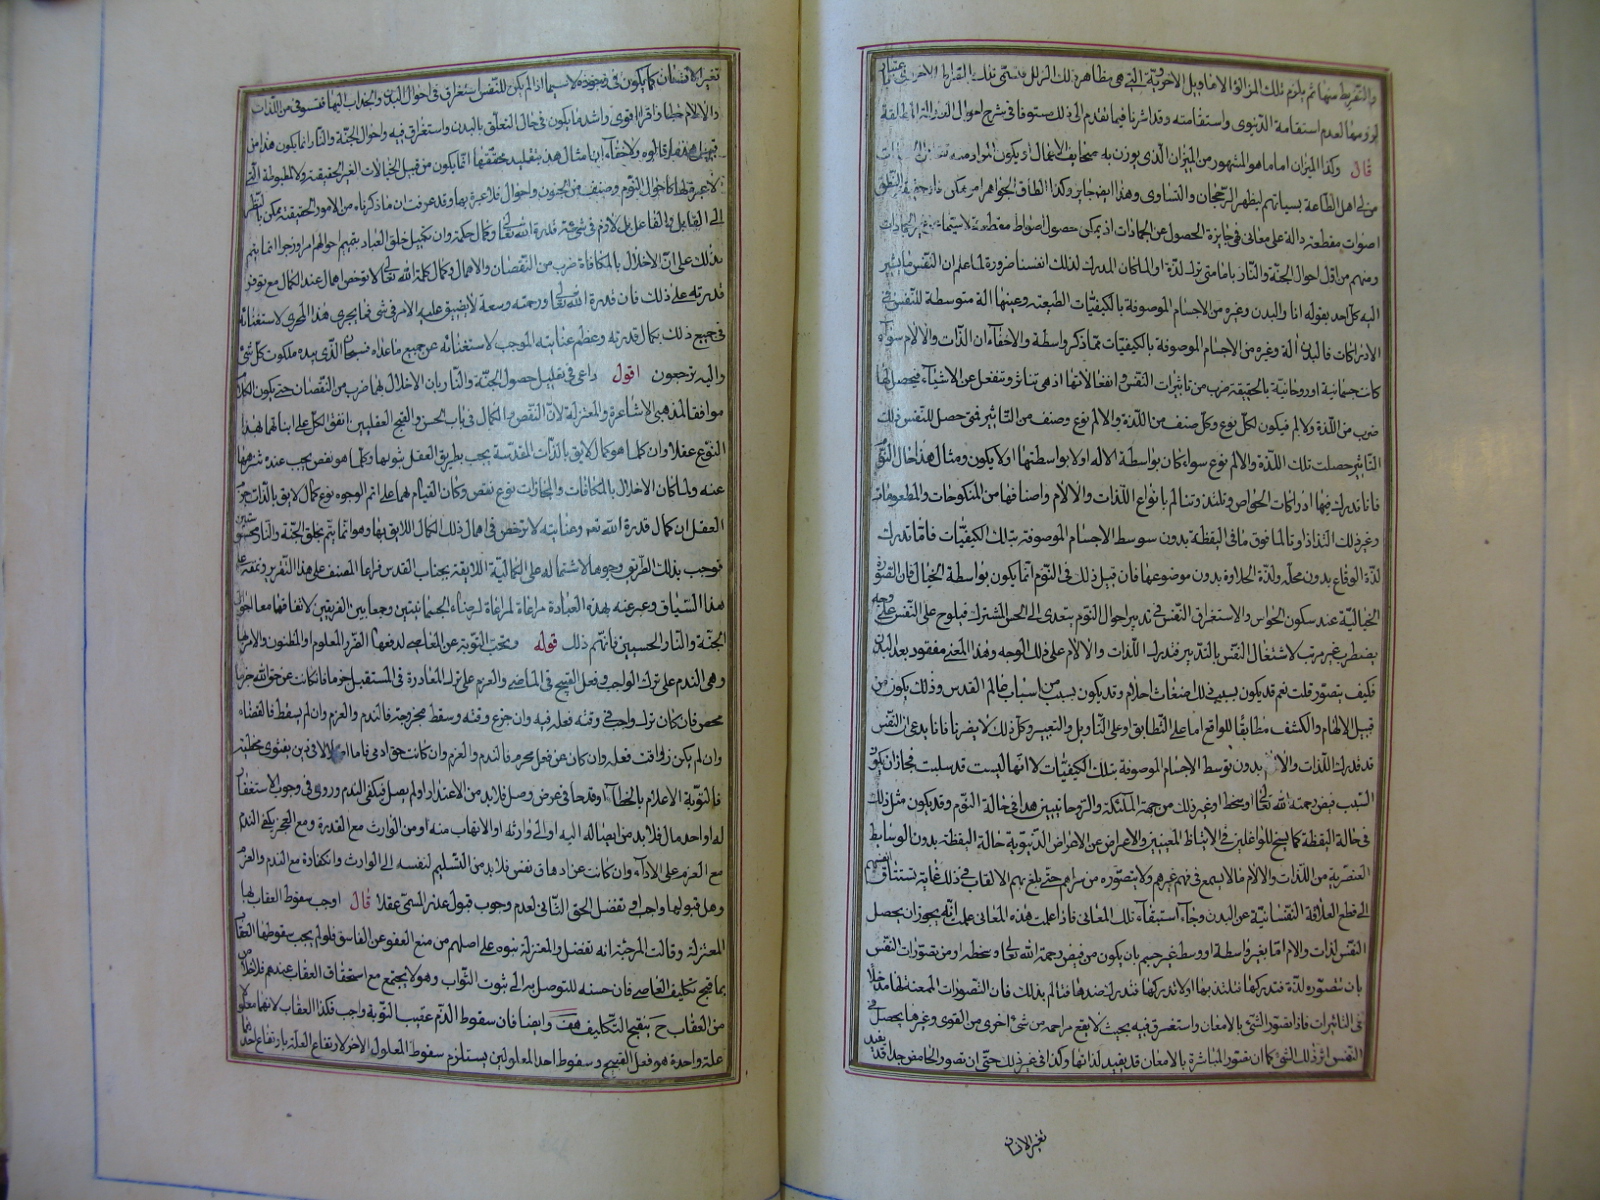 والتفريط منها ثم يلزم تلك المزالق الاقاويل الاخروية التي هي مظاهر ذلك الزلل
لعدم استقامة الدنيوى واستقامته وقد اشرنا فيما تقدم الى ذلك مستوفا فى شرح احوال
قال وكذا الميزان اما ما هو المشهور من الميزان الذى يوزن به صحايف الاعمال او يكون
اهل الطاعة بسيئاتهم ليظهر الرجحان والتساوى وهذا ايضا جايز وكذا انطاق الجوارح امر ممكن
اصوات مقطعة دالة على معانى جايزة الحصول عن الجمادات اذ يمكن حصول اصوات مقطعة
ومنهم من اول احوال الجنة والنار ولما كان المدرك لذلك انفسنا ضرورة لما علم ان النفس ما يشير
اليه كل احد بقوله انا والبدن وغيره من الاجسام الموصوفة بالكيفيات الطبيعية وعينها الة متوسطة للنفس فى
الادراكات فالبدن الة وغيره من الاجسام الموصوفة بالكيفيات بما ذكر واسطة والاخفاء ان الذات والالام سواء
كانت جسمانية او روحانية بالحقيقة ضرب من تاثيرات النفس وانفعالاتها اذ هى تتاثر وتنفعل عن الاشياء فيحصل لها
ضرب من اللذة والالم فيكون لكل نوع وكل صنف من اللذة والالم نوع وصنف من التاثير فمتى حصل للنفس ذلك
التاثير حصلت تلك اللذة والالم نوع سواء كان بواسطة الاله اولا بواسطتها اولا يكون ومثال هذا حال النوم
فانا ندرك فيها ادراكات الحواس ونلتذ ونتالم بانواع اللذات والالام واصنافها من المنكوحات والمطعومات
وغير ذلك التذاذا وتالما فوق ما فى اليقظة بدون توسط الاجسام الموصوفة بتلك الكيفيات فانما ندرك
لذة الوقاع بدون محله ولذة الحلاوة بدون موضوعها فان قيل ذلك فى النوم انما يكون بواسطة الخيال فان القوة
الخيالية عند سكون الحواس والاستغراق النفس فى تدبير احوال النوم يتعدى الى الحس المشترك فيلوح على النفس على وجه
يضطرب غير مرتب لاشتغال النفس بالتدبير فتدرك اللذات والالام على ذلك الوجه وهذا المعنى مفقود بعد البدن
فكيف يتصور قلت نعم قد يكون بسبب ذلك اضغاث احلام وقد يكون بسبب من اسباب عالم القدس وذلك يكون من
قبيل الالهام والكشف مطابقا للواقع اما على التطابق او على التاويل والتعبير وكل ذلك لا يضرنا فانا ندعى ان النفس
قد تدرك اللذات بدون توسط الاجسام الموصوفة بتلك الكيفيات لا انها ليست قد سلبت فجاز ان يكون
السبب فيض رحمة الله تعالى او سخط او غير ذلك من جهة الملئكة والروحانيين هذا فى حالة النوم وقد يكون مثل ذلك
فى حالة اليقظة كما يسنح للواغلين فى الاعراض عن الاعراض الدنيوية حالة اليقظة بدون الوسايط
العنصرية من اللذات والالام ما لا يسمع فى غيرهم ولا يتصوره من سواهم حتى بلغ بهم الالتفات فى ذلك غاية تستتاق انفسهم
الى قطع العلاقة النفسانية عن البدن وجاء استبقاء تلك المعانى فاذا علمت هذه المعانى علمت انه يجوز ان يحصل
النفس لذات والام اما بغير واسطة او وسط غير جسم بان يكون من فيض رحمة الله تعالى وسخطه او من تصورات النفس
بان تتصوره لذة فتدركها فتلتذ بها اولا تدركها فتدرك ضدها فتالم بذلك فان التصورات الممعنة لها مدخلا
فى التاثيرات فاذا تصور الشئ بالامعان واستغرق فيه بحيث لا يقع مزاحمة من شئ اخرى من القوى وغيرها يحصل فى
النفس اثر ذلك الشئ كما ان تصور المباشرة بالامعان قد يفيد لذاتها وكذا فى غير ذلك حتى ان تصور الحامض جدا قد يفيد
تغير الاسنان
تغير الاسنان كما يكون فى وجوده لا سيما اذا لم يكن للنفس استغراق فى احوال البدن وانجذاب اليها فتستوفى من اللذات
والالام حظا وافرا اقوى واشد ما يكون فى حال التعلق بالبدن واستغراق فيه واحوال الجنة والنار انما يكون هذا من
قبيل ولا خفاء ان امثال هذا بتقليد محققها انما يكون من قبيل الخيالات الغير الحقيقية ولا المضبوطة التى
لا عبرة لها كاحوال النوم وصنف من الجنون واحوال فلا عبرة بها وقد عرفت ان ما ذكرناه من الامور الحقيقية يمكن بالنظر
الى القابل والفاعل بل لازم فى سعة قدرة الله تعالى وكمال حكمته وان تكميل خلق العباد
بذلك على ان الاخلال بالمكافاة ضرب من النقصان والاهمال وكمال كلمة الله تعالى لا ترخص اهمال عند الكمال مع توفر
قدرته على ذلك فان قدرة الله تعالى ورحمته وسعة لا يضيق عليه الامر فى شئ فما يجرى هذا المجرى لاستغنائه
فى جميع ذلك بكمال قدرته وعظم عنايته الموجب لاستغنائه عن جميع ما عداه فسبحان الذى بيده ملكوت كل شئ
واليه ترجعون اقول داعى فى تعليل حصول الجنة والنار بان الاخلال بهما ضرب من النقصان حتى يكون الكلام
موافقا لمذهبى الاشاعرة والمعتزلة لان النقص والكمال فى باب الحسن والقبح العقليين اتفق الكل على اثباتهما بهذا
النوع عقلا وان كلما هو كمال لايق بالذات المقدسة يجب بطريق العقل ثبوتها وكلما هو نقص يجب عنده تنزيهها
عنه ولما كان الاخلال بالمكافات والمجازات نوع نقص وكان القيام بهما على اتم الوجوه نوع كمال لايق بالذات جزم
العقل ان كمال قدرة الله تعم وعنايته لا يرخص فى اهمال ذلك الكمال اللايق بها وهو انما يتم بخلق الجنة والنار محسوستين
فوجب بذلك الطريق وجوبها لاشتماله على الكمالية اللايقة بجناب القدس فراعا المصنف على هذا التقرير
هذا السياق وعبر عنه بهذه العبادة مراعاة لمراغاة الجسمانيتين وجمعا بين الفريقين لاتفاقهما معا
الجنة والنار الحسيين فافهم ذلك قوله وتجب التوبة عن المعاصى لدفعها الضرر المعلوم او المظنون والامر بها
وهى الندم على ترك الواجب وفعل القبيح فى الماضى والعزم على ترك المغادرة فى المستقبل جزما فان كانت عن حق الله جزما
محض فان كان ترك واجب فى وقته فعله فيه وان خرج وقته وسقط مجروجه فالندم والعزم وان لم يسقط فالقضاه
وان لم يكن فعله وان كان عن فعل محرم فالندم والعزم وان كانت حق ادمى فاما بفتوى مخطئة
فالتوبة الاعلام بالخطاء او قدحا فى عرض وصل فلا بد من الاعتذار او لم يصل فيكفى الندم وروى فى وجوب الاستغفار
له او احد مال فلا بد من ايصاله اليه او الى وارثه او الاتهاب منه او من الوارث مع القدرة ومع العجز يكفى الندم
مع العزم على الاداء وان كانت عن ازهاق نفس فلا بد من التسليم لنفسه الى الوارث وانكفارة مع الندم والعزم
وهل قبولها واجب او تفضل الحق الثانى لعدم وجوب قبول عذر المسئ عقلا قال اوجب سقوط العقاب بها
المعتزلة وقالت المرجئة انه تفضل والمعتزلة بنوه على اصلهم من منع العفو عن الفاسق فلو لم يجب سقوطها العقاب
بها قبح تكليف العاصى فان حسنه للتوصل به الى ثبوت الثواب وهو لا يجتمع مع استحقاق العقاب عندهم فلا خلاص
من العقاب ح يقبح التكليف هف وايضا فان سقوط الذم عقيب التوبة واجب فكذا العقاب لانهما معلولا
علة واحدة هو فعل القبيح وسقوط احد المعلولين يستلزم سقوط المعلول الاخر لارتفاع العلة بارتفاع احد